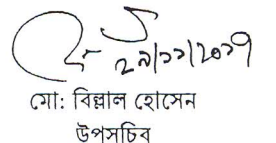 ২৯/১১/২০১৭
মো: বিল্লাল হোসেন
উপসচিব